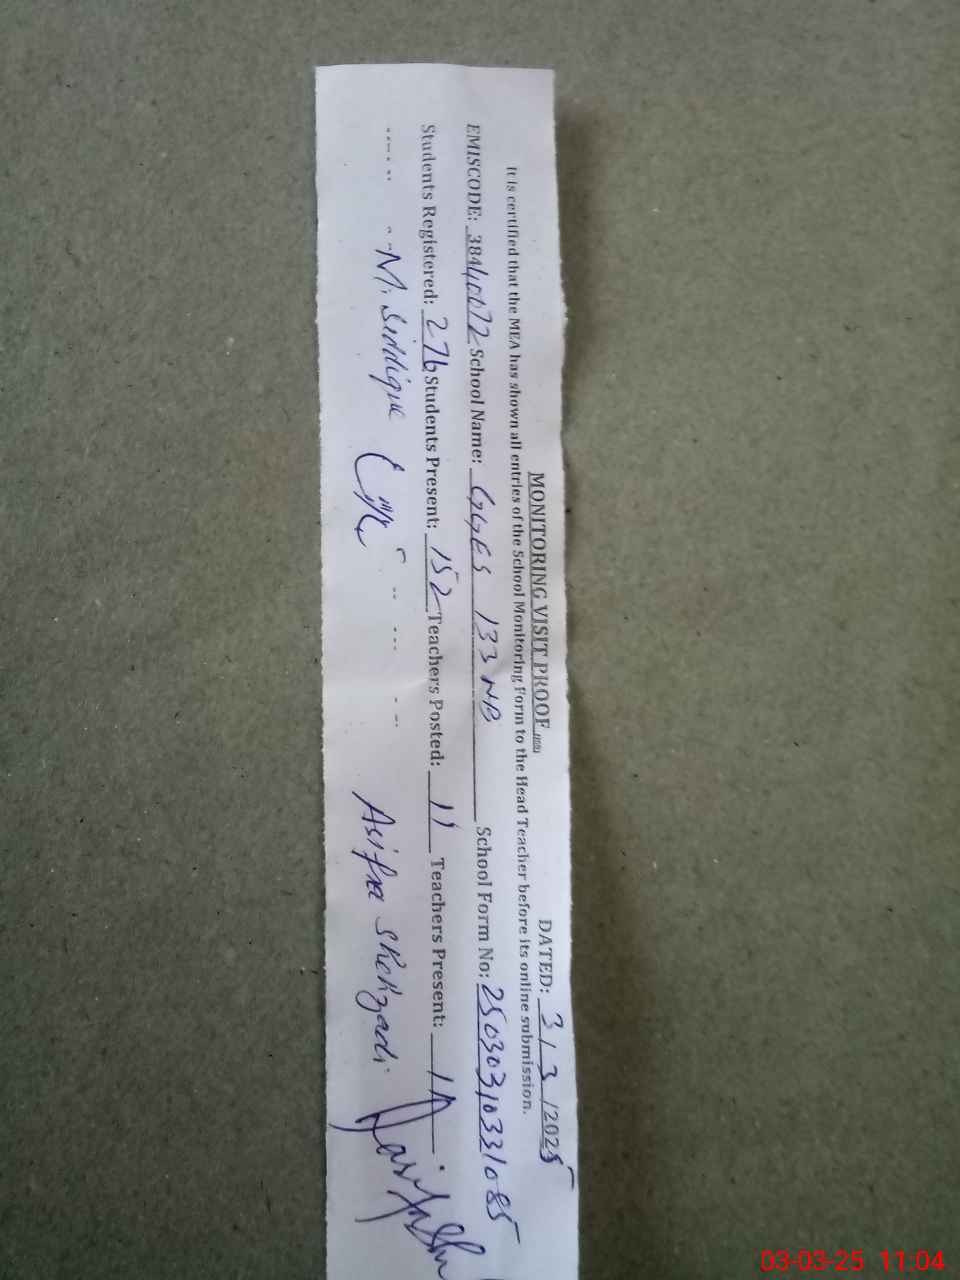 MONITORING VISIT PROOF DATED: 3/3/2025
It is certified that the MEA has shown all entries of the School Monitoring Form to the Head Teacher before its online submission.
EMISCODE: 38440072 School Name: GGES 133 NB School Form No: 25030310331085
Students Registered: 276 Students Present: 152 Teachers Posted: 11 Teachers Present:
M. Siddique Asifa Shehzadi
03-03-25 11:04